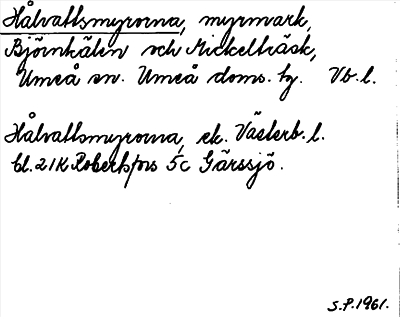 Hålvattsmyrorna, myrmark,
Björnkälen och Mickelträsk,
Umeå sn. Umeå doms. tg. Vb. l.
Hålvattsmyrorna, ek. Västerb. l.
bl. 21K Robertsfors 5c Gärssjö.
S.P. 1961.